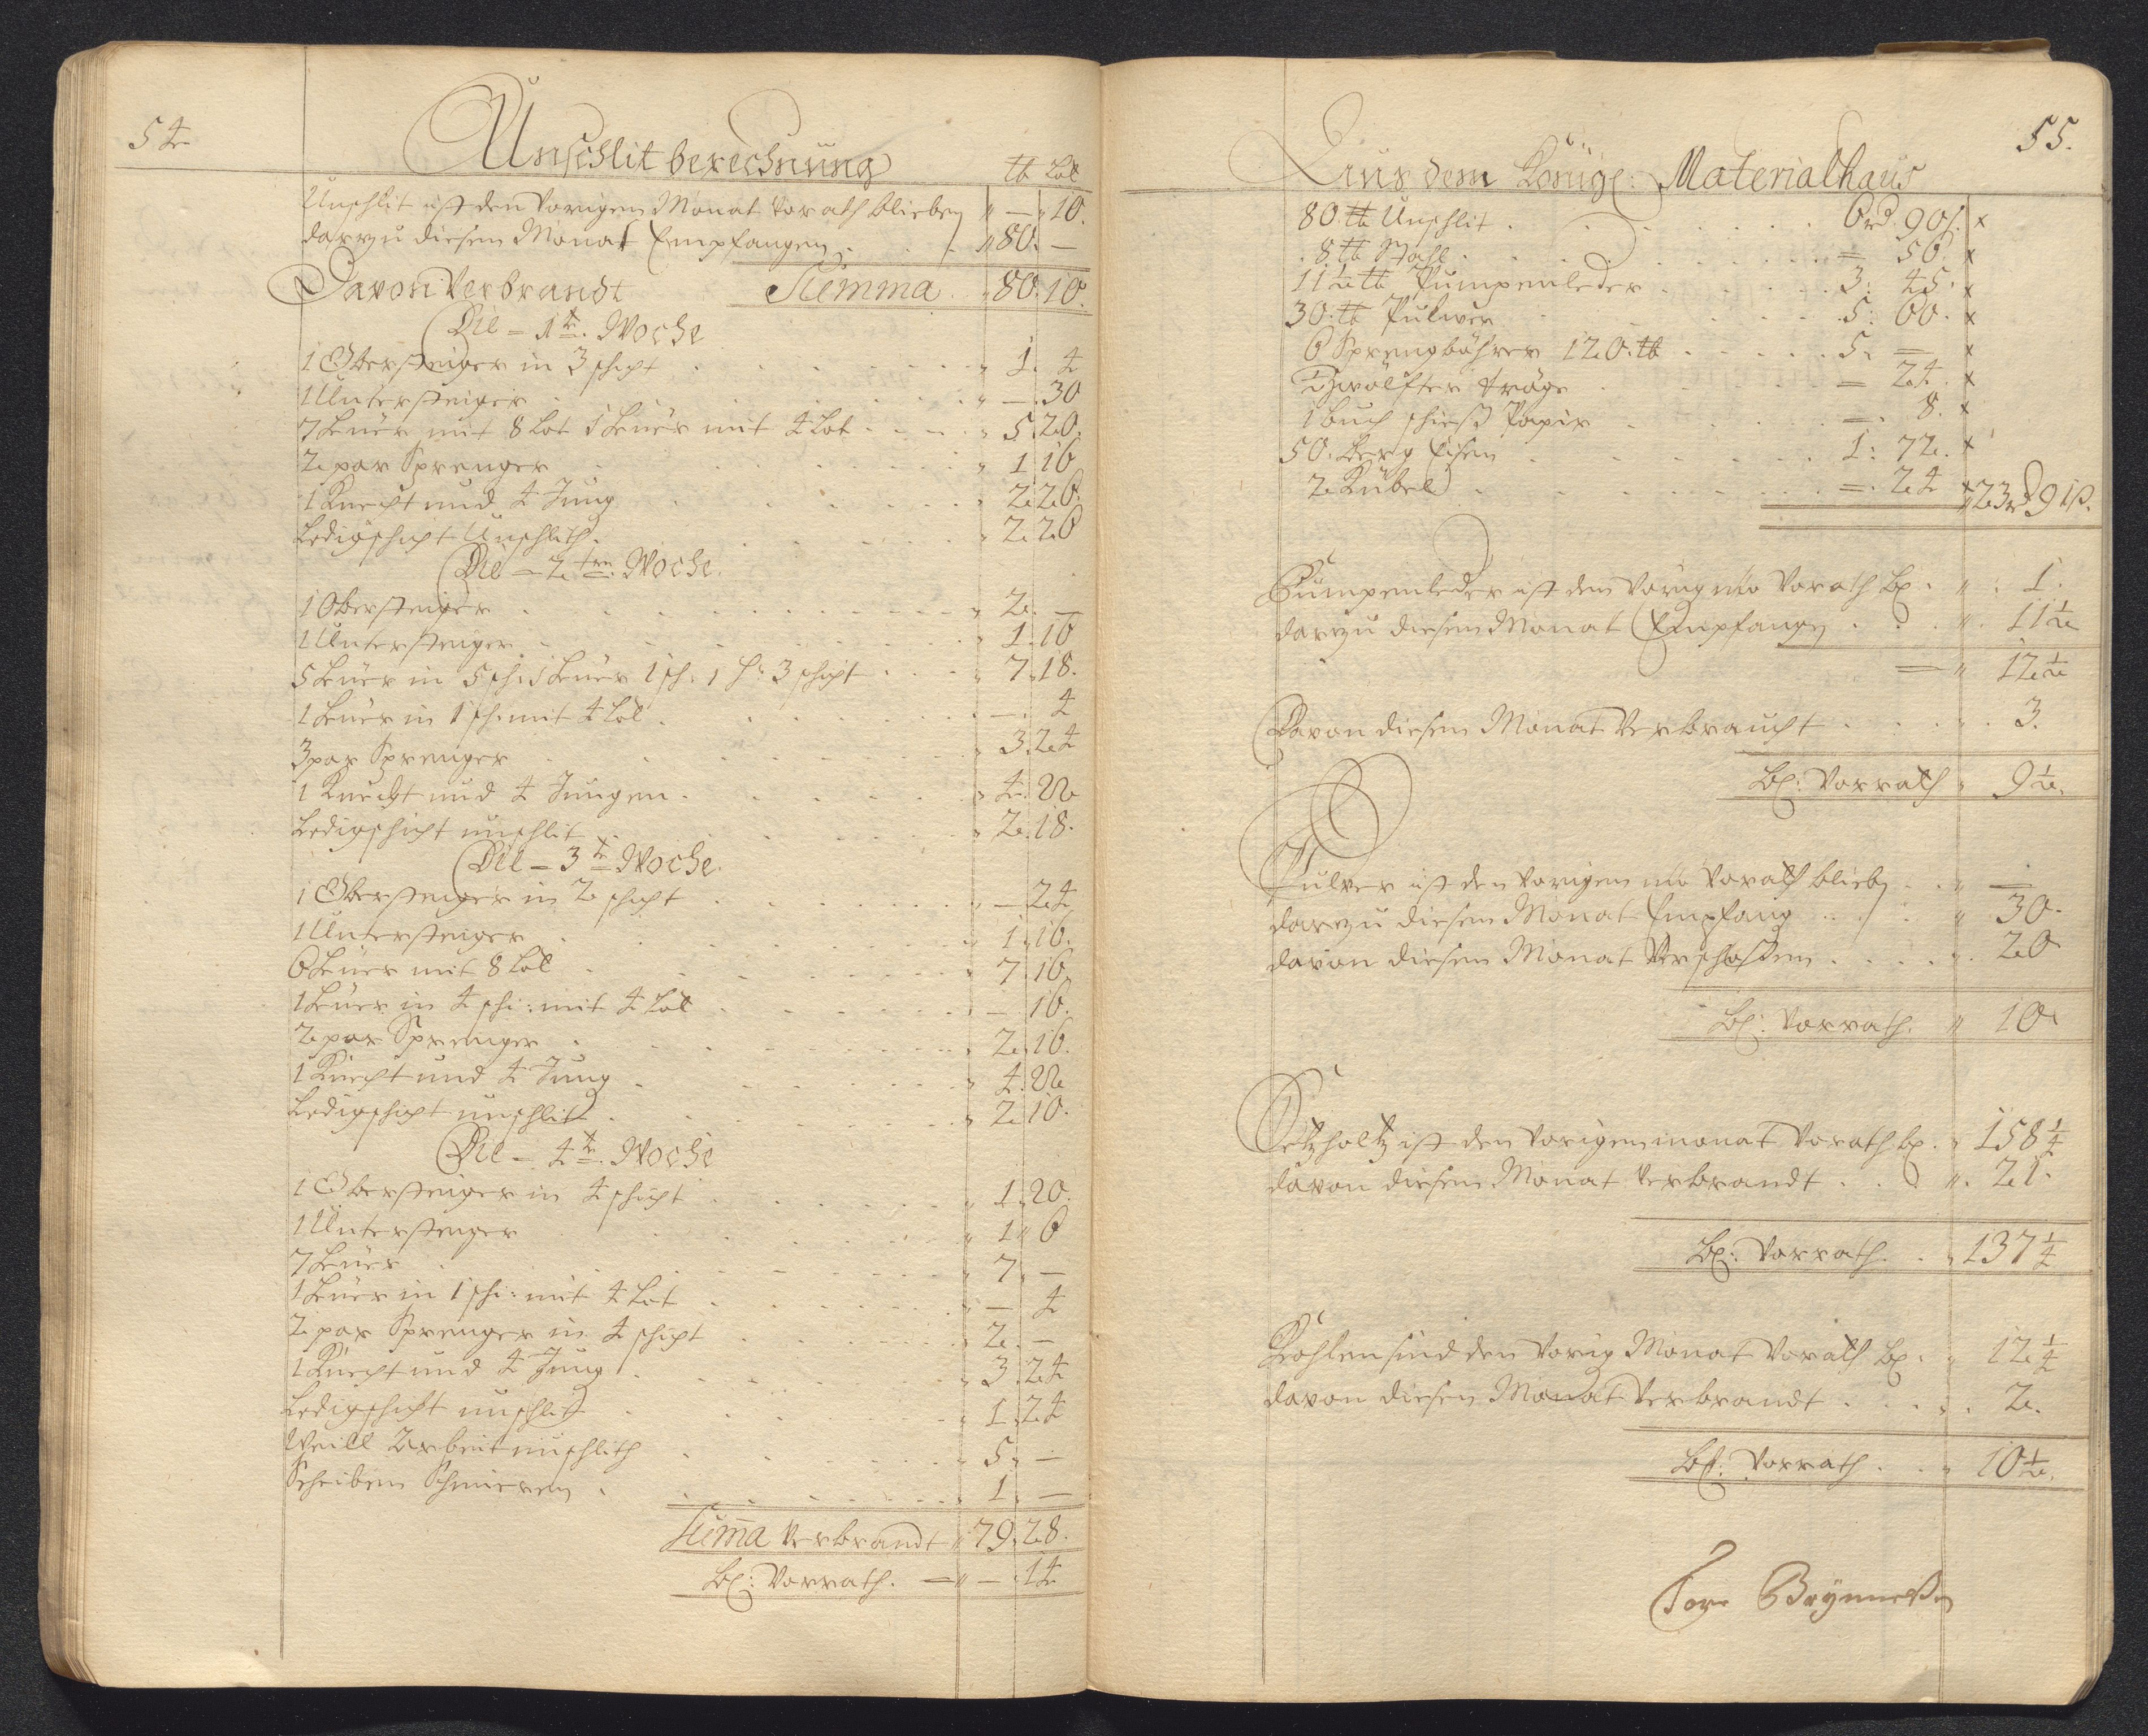 54
Unschlit berechnung
tb Lot
Unschlit ist den Vorigen Monat Vorath blieben " — " 10.
darzu diesen Monat Empfangen . . . " 80. —
Davon Verbrandt Summa . " 80. 10.
Die = 1te. Woche
1 Obersteiger in 3 schicht . . . " 1. 4
1 Untersteiger . . . " —. 30
7 Heuer mit 8 Lot 1 Heuer mit 4 Lot . . . " 5. 20.
2 par Sprenger . . . " 1. 16
1 Knecht und 4 Jung . . . " 2. 26.
Ledigschicht Unschlith . . . " 2. 26
Die = 2ten. Woche.
1 Obersteiger . . . " 2. —
1 Untersteiger . . . " 1. 16
5 Heuer in 5 sch: 1 Heuer 1 sch: 1 h: 3 schicht . . . " 7. 18.
1 Heuer in 1 sch: mit 4 Lot . . . —. 4
3 par Sprenger . . . " 3. 24
1 Knecht und 4 Jungen . . . " 4. 22
Ledigschicht unschlit . . . " 2. 18.
Die = 3te Woche.
1 Obersteiger in 2 schicht . . . " — 24
1 Untersteiger . . . " 1. 16.
6 Heuer mit 8 Lot . . . " 7. 16.
1 Heuer in 4 sch: mit 4 Lot . . . — 16.
2 par Sprenger . . . " 2. 16.
1 Knecht und 4 Jung . . . " 4. 22
Ledigschicht unschlit . . . " 2. 10.
Die = 4te. Woche
1 Obersteiger in 4 schicht . . . " 1. 20.
1 Untersteiger . . . " 1 " 6
7 Heuer . . . " 7. —
1 Heuer in 1 sch: mit 4 Lot . . . " — 4
2 par Sprenger in 4 schicht . . . " 2. —
1 Knecht und 4 Jung . . . " 3. 24
Ledigschicht unschlit . . . " 1. 24
Weill Arbeit unschlith . . . " 5. —
Scheiben Schmieren . . . " 1. —
Summa Verbrandt " 79. 28.
Bl: Vorrath. = " — . 14
55.
Aus dem Königl: Materialhaus
80. tb Unschlit . . . 6 rd. 90 s. x
8 tb Stahl . . . = 56. x
11½ tb Pumpenleder . . . 3: 45. x
30. tb Pulver . . . 5: 60. x
6 Sprengbohrer 120. tb . . . 5. = x
Zwölfter tröge . . . = 24. x
1 buch schieß Papir . . . =. 8. x
50. Berg Eisen . . . 1: 72. x
2 Kübel . . . =. 24 x
" 23 rd 91 s.
Pumpenleder ist den Vorig mo Vorath bl. " . 1.
darzu diesen Monat Empfangen . . . " . 11½
= " 12½
Davon diesen Monat Verbraucht . . . " . 3.
bl: Vorrath " 9½.
Pulver ist den Vorigen mo Vorath blieb . . " —
darzu diesen Monat Empfang . . . " 30.
davon diesen Monat Verschoßen . . . " . 20
bl: Vorrath. " 10.
Setzholtz ist den Vorigen monat Vorath bl. " 158¼
davon diesen Monat Verbrandt . . . " . 21.
bl: Vorrath . . " 137¼
Kohlen sind den Vorig Monat Vorath bl. " 12¼
davon diesen Monat Verbrandt . . . " . 2.
bl: Vorrath . . " 10½.
Tore